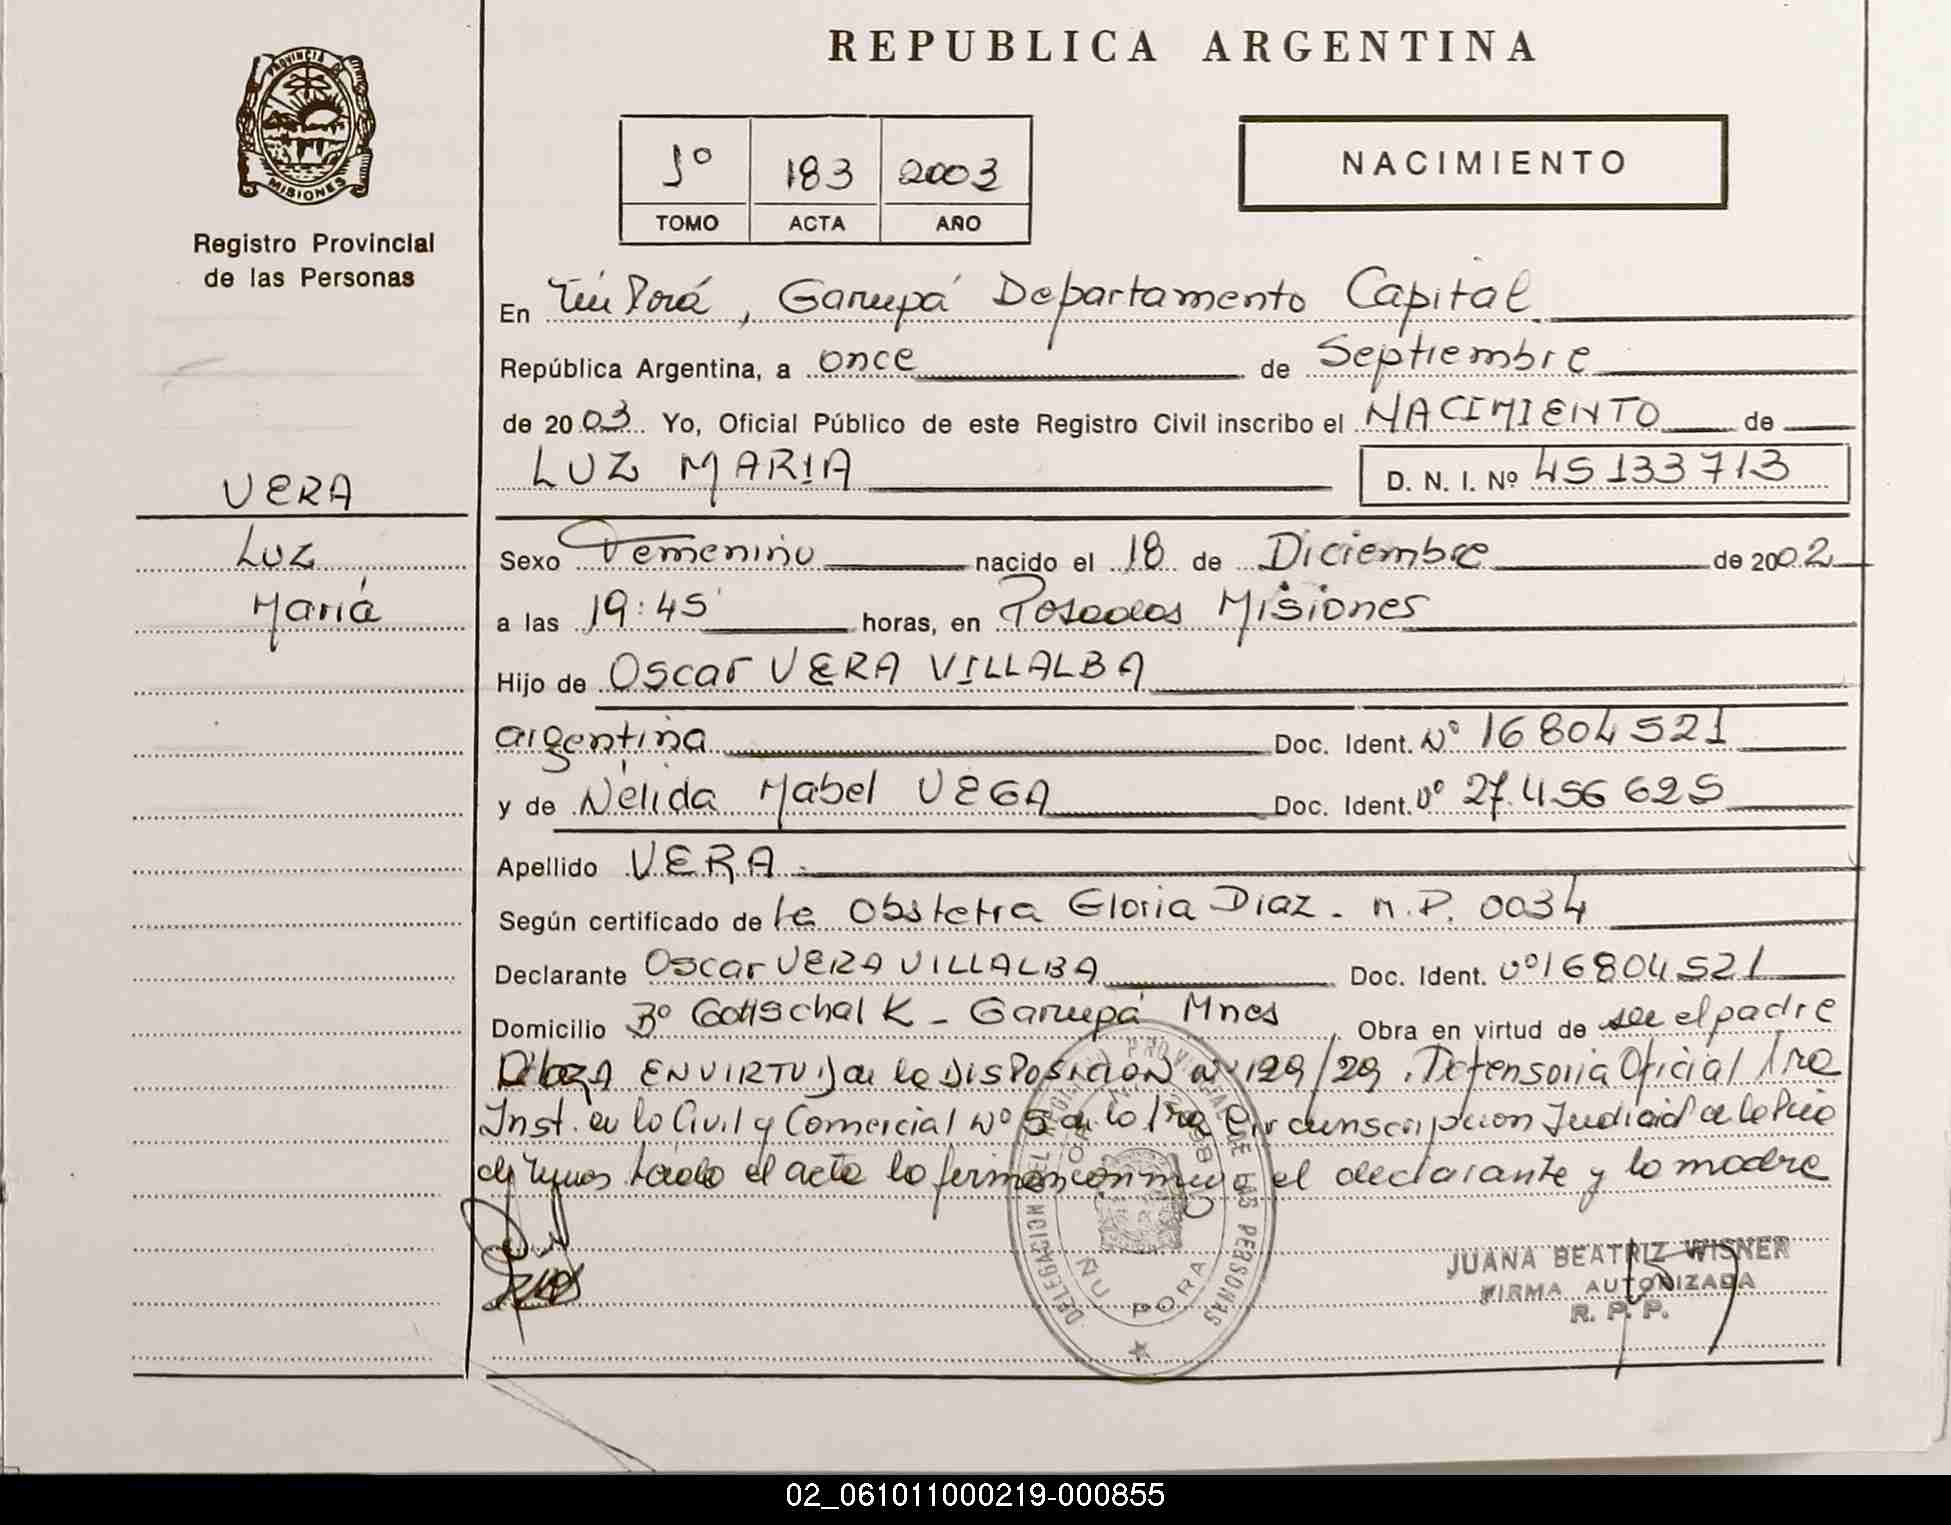 REPUBLICA ARGENTINA
PROVINCIA DE MISIONES
Registro Provincial
de las Personas
1º 183 2003
TOMO ACTA AÑO
NACIMIENTO
En Ñu Porá, Garupá Departamento Capital
República Argentina, a once de Septiembre
de 2003 Yo, Oficial Público de este Registro Civil inscribo el NACIMIENTO de
LUZ MARIA D. N. I. Nº 45133713
VERA
Luz
Mariá
Sexo Femenino nacido el 18 de Diciembre de 2002
a las 19:45 horas, en Posadas Misiones
Hijo de Oscar VERA VILLALBA
argentina Doc. Ident. Nº 16804521
y de Nélida Mabel VEGA Doc. Ident. Nº 27.456625
Apellido VERA
Según certificado de la Obstetra Gloria Diaz - M.P. 0034
Declarante Oscar VERA VILLALBA Doc. Ident. Nº 16804521
Domicilio Bº Gottschalk - Garupá Mnes Obra en virtud de ser el padre
EN VIRTUD de la DISPOSICION Nº 129/29. Defensoria Oficial 1ra
Inst. en lo Civil y Comercial Nº 5 de la 1ra Circunscripcion Judicial de la Pcia
de Mnes leido el acta la firman conmigo el declarante y la madre
DELEGACION DEL REGISTRO PROVINCIAL DE LAS PERSONAS
ÑU PORA
JUANA BEATRIZ WISNER
FIRMA AUTORIZADA
R. P. P.
02_061011000219-000855